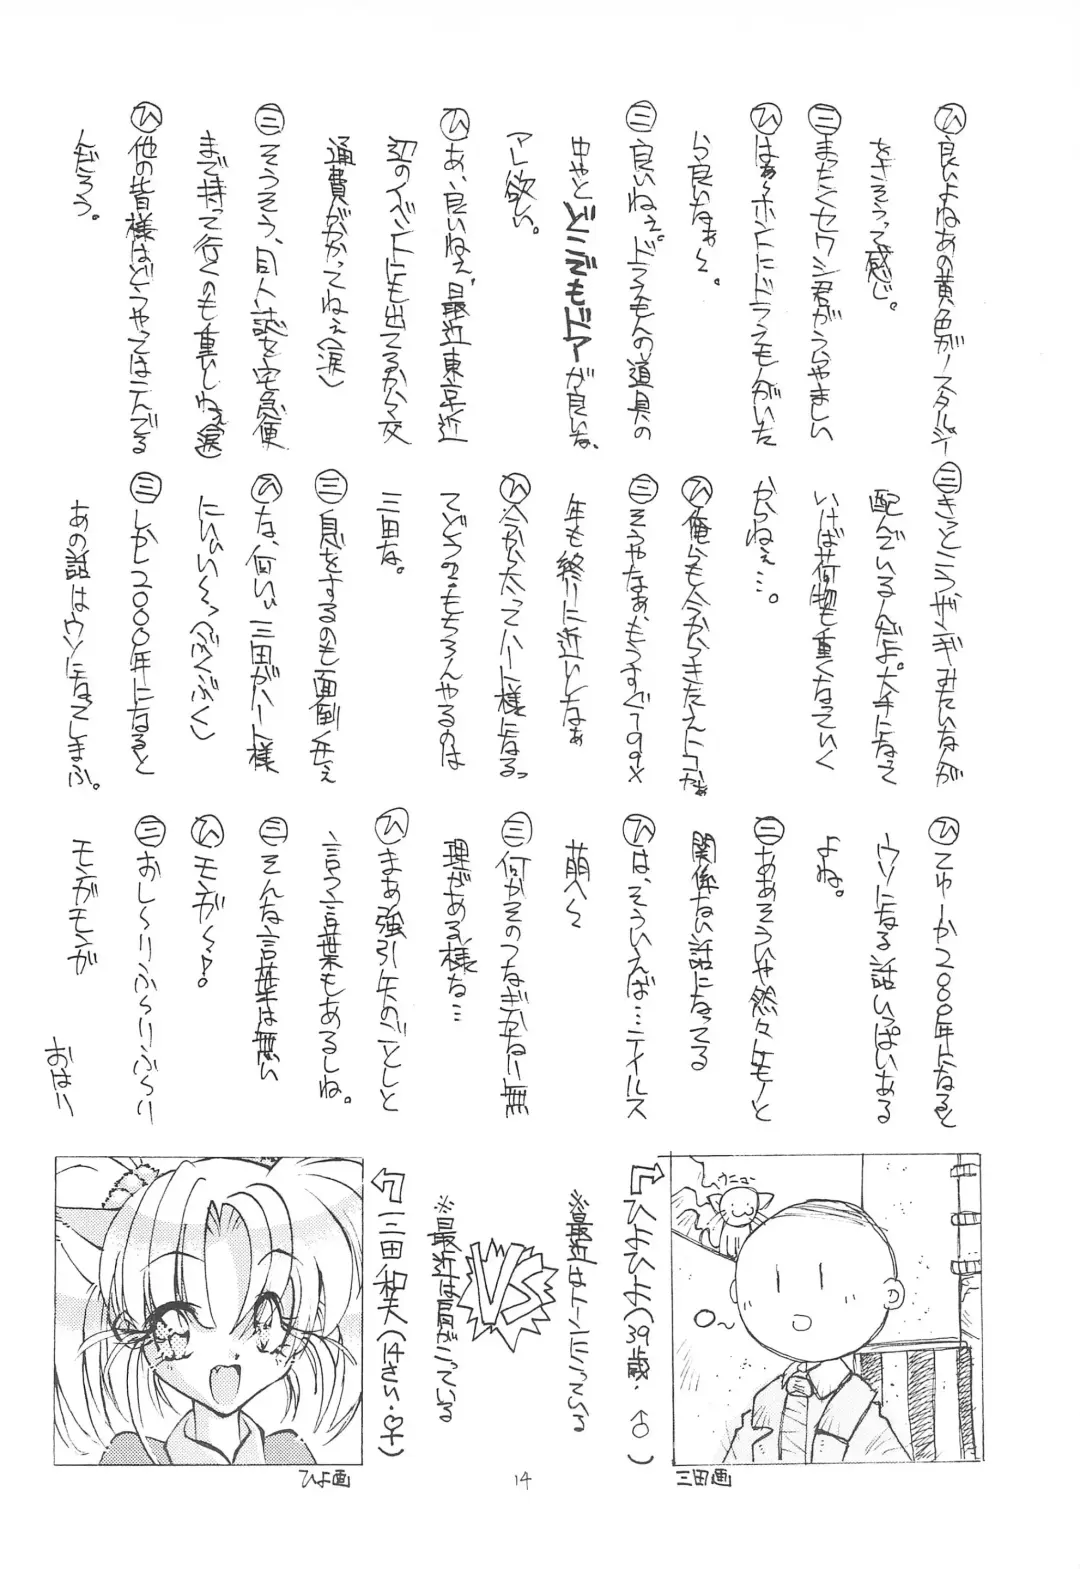 ひ 良いよねあの黄色がノスタルジー
をさそうって感じ。
三 まったくセワシ君がうらやましい
ひ はぁ〜ホントにドラえもんがいた
ら良いなぁ〜。
三 良いねぇ。ドラえもんの道具の
中やと どこでもドアーが良いな、
アレ欲い。
ひ あ、良いねぇ、最近東京近
辺のイベントにも出てるから交
通費がかかってねぇ(涙)
三 そうそう、同人誌を宅急便
まで持って行くのも重いしねぇ(涙)
ひ 他の皆様はどうやってはこんでる
んだろう。
三 きっとこうザンギみたいなんが
配んでいるんだよ。大手になって
いけば荷物も重くなっていく
からねぇ…。
ひ 俺らも今からきたえにゃコなぁ
三 そうやなぁ、もうすぐ199X
年も終りに近いしなぁ
ひ 今から太ってハート様になるっ
てどうの?もちろんやるのは
三田な。
三 息をするのも面倒くせぇ
ひ な、何ぃい三田がハート様
にいぃい〜っ(ぶくぶく)
三 しかし2000年になると
あの話はウソになってしまふ。
ひ てゆーか2000年になると
ウソになる話いっぱいある
よね。
三 ああそういや然々モノと
関係ない話になってる
ひ は、そういえば…テイルス
萌へ〜
三 何かそのつなぎかなり無
理がある様な…
ひ まあ強引矢のごとしと
言う言葉もあるしね。
三 そんな言葉は無い
ひ モンガ〜!
三 おし〜りふ〜りふ〜り
モンガモンガ
おはり
ウニュー
ひよひよ(39歳・♂)
※最近はトーンにこっている
VS
※最近は肩がこっている
三田和夫(14さい・♡子)
三田画
ひよ画
14